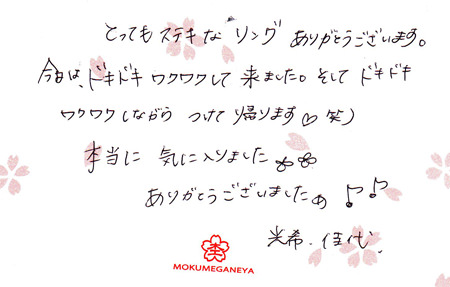 とってもステキな リング ありがとうございます。
今日は、ドキドキ ワクワクして 来ました。そして ドキドキ
ワクワクしながら つけて 帰ります♡ 笑)
本当に 気に入りました
ありがとうございました ♪♪
光希・佳代
MOKUMEGANEYA